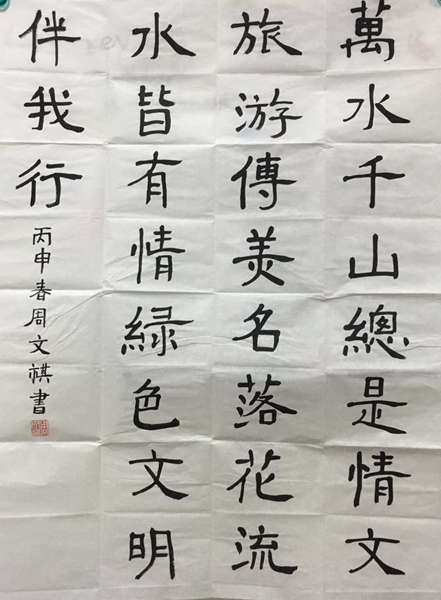 萬水千山總是情文
旅游傳美名落花流
水皆有情綠色文明
伴我行
丙申春周文祺書